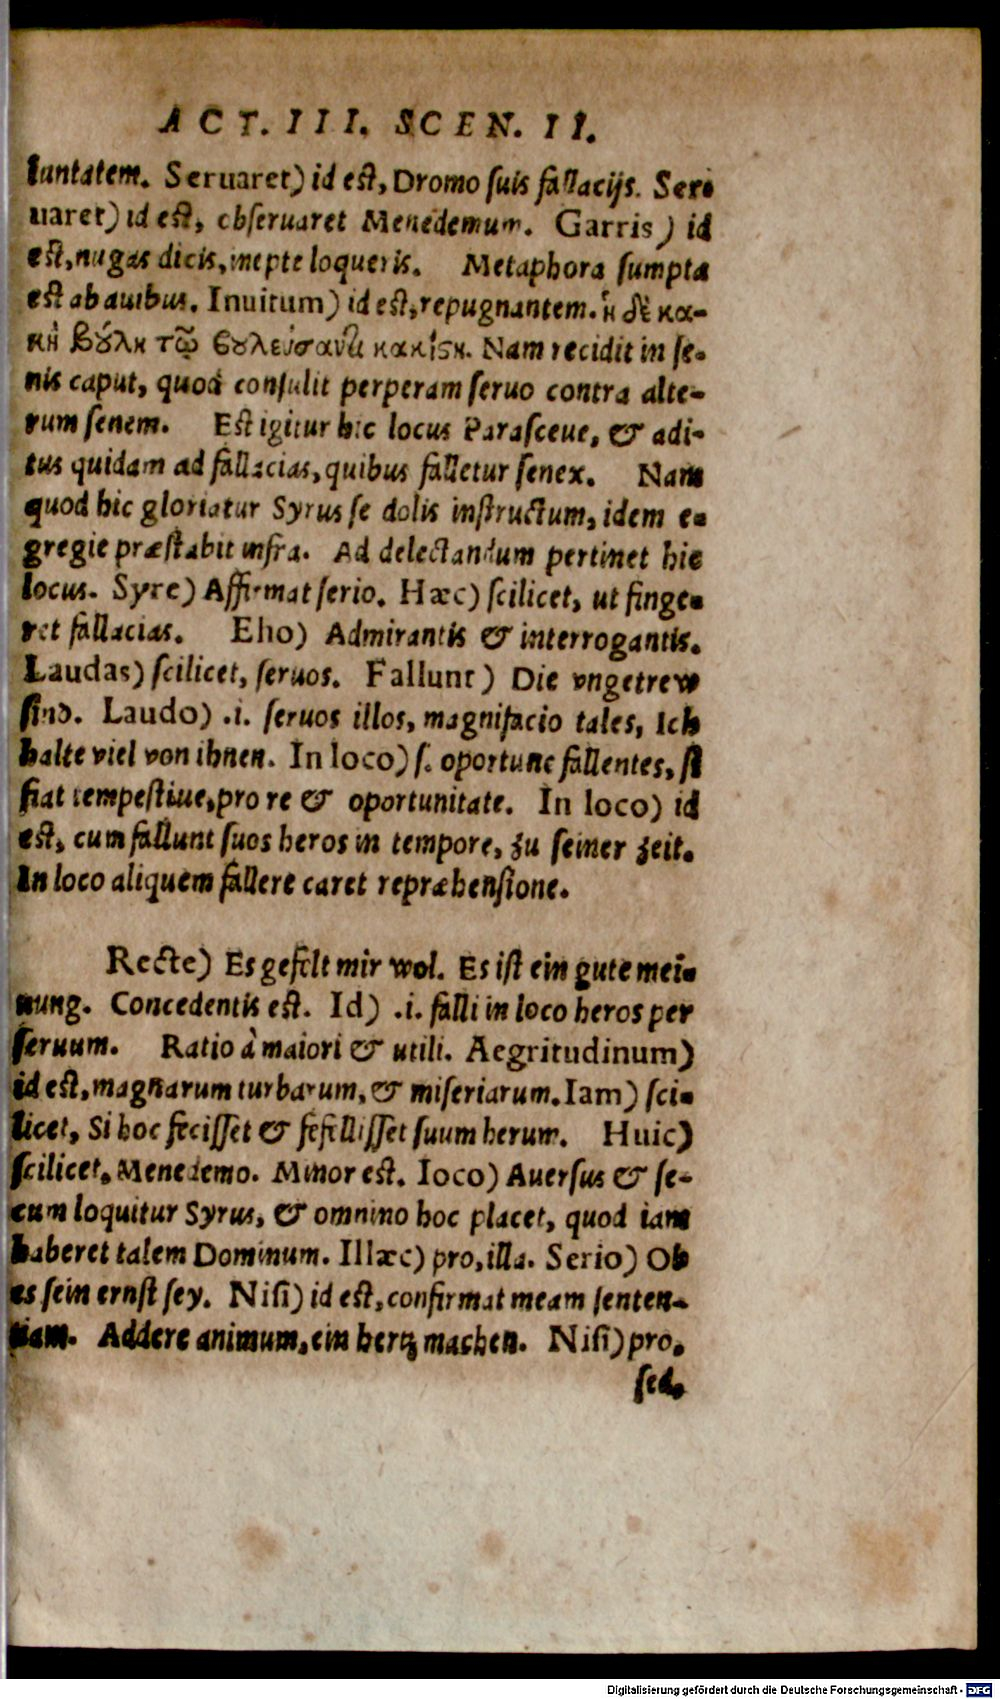 ACT. III. SCEN. II.
luntatem. Seruaret) id est, Dromo suis fallacijs. Ser-
uaret) id est, obseruaret Menedemum. Garris) id
est, nugas dicis, inepte loqueris. Metaphora sumpta
est ab auibus. Inuitum) id est, repugnantem. ἡ δὲ κα-
κὴ βȣλὴ τῷ βȣλεύσαντι κακίϛη. Nam recidit in se-
nis caput, quod consulit perperam seruo contra alte-
rum senem. Est igitur hic locus Parasceue, & adi-
tus quidam ad fallacias, quibus falletur senex. Nam
quod hic gloriatur Syrus se dolis instructum, idem e-
gregie præstabit infra. Ad delectandum pertinet hic
locus. Syre) Affirmat serio. Hæc) scilicet, ut finge-
ret fallacias. Eho) Admirantis & interrogantis.
Laudas) scilicet, seruos. Fallunt) Die vngetrew
sind. Laudo) .i. seruos illos, magnifacio tales, Ich
halte viel von ihnen. In loco) s. oportune fallentes, si
fiat tempestiue, pro re & oportunitate. In loco) id
est, cum fallunt suos heros in tempore, zu seiner zeit.
In loco aliquem fallere caret repræhensione.
Recte) Es gefelt mir wol. Es ist ein gute mei-
nung. Concedentis est. Id) .i. falli in loco heros per
seruum. Ratio à maiori & utili. Aegritudinum)
id est, magnarum turbarum, & miseriarum. Iam) sci-
licet, Si hoc fecisset & fefellisset suum herum. Huic)
scilicet, Menedemo. Minor est. Ioco) Auersus & se-
cum loquitur Syrus, & omnino hoc placet, quod iam
haberet talem Dominum. Illæc) pro, illa. Serio) Ob
es sein ernst sey. Nisi) id est, confirmat meam senten-
tiam. Addere animum, ein hertz machen. Nisi) pro,
sed.
Digitalisierung gefördert durch die Deutsche Forschungsgemeinschaft - DFG